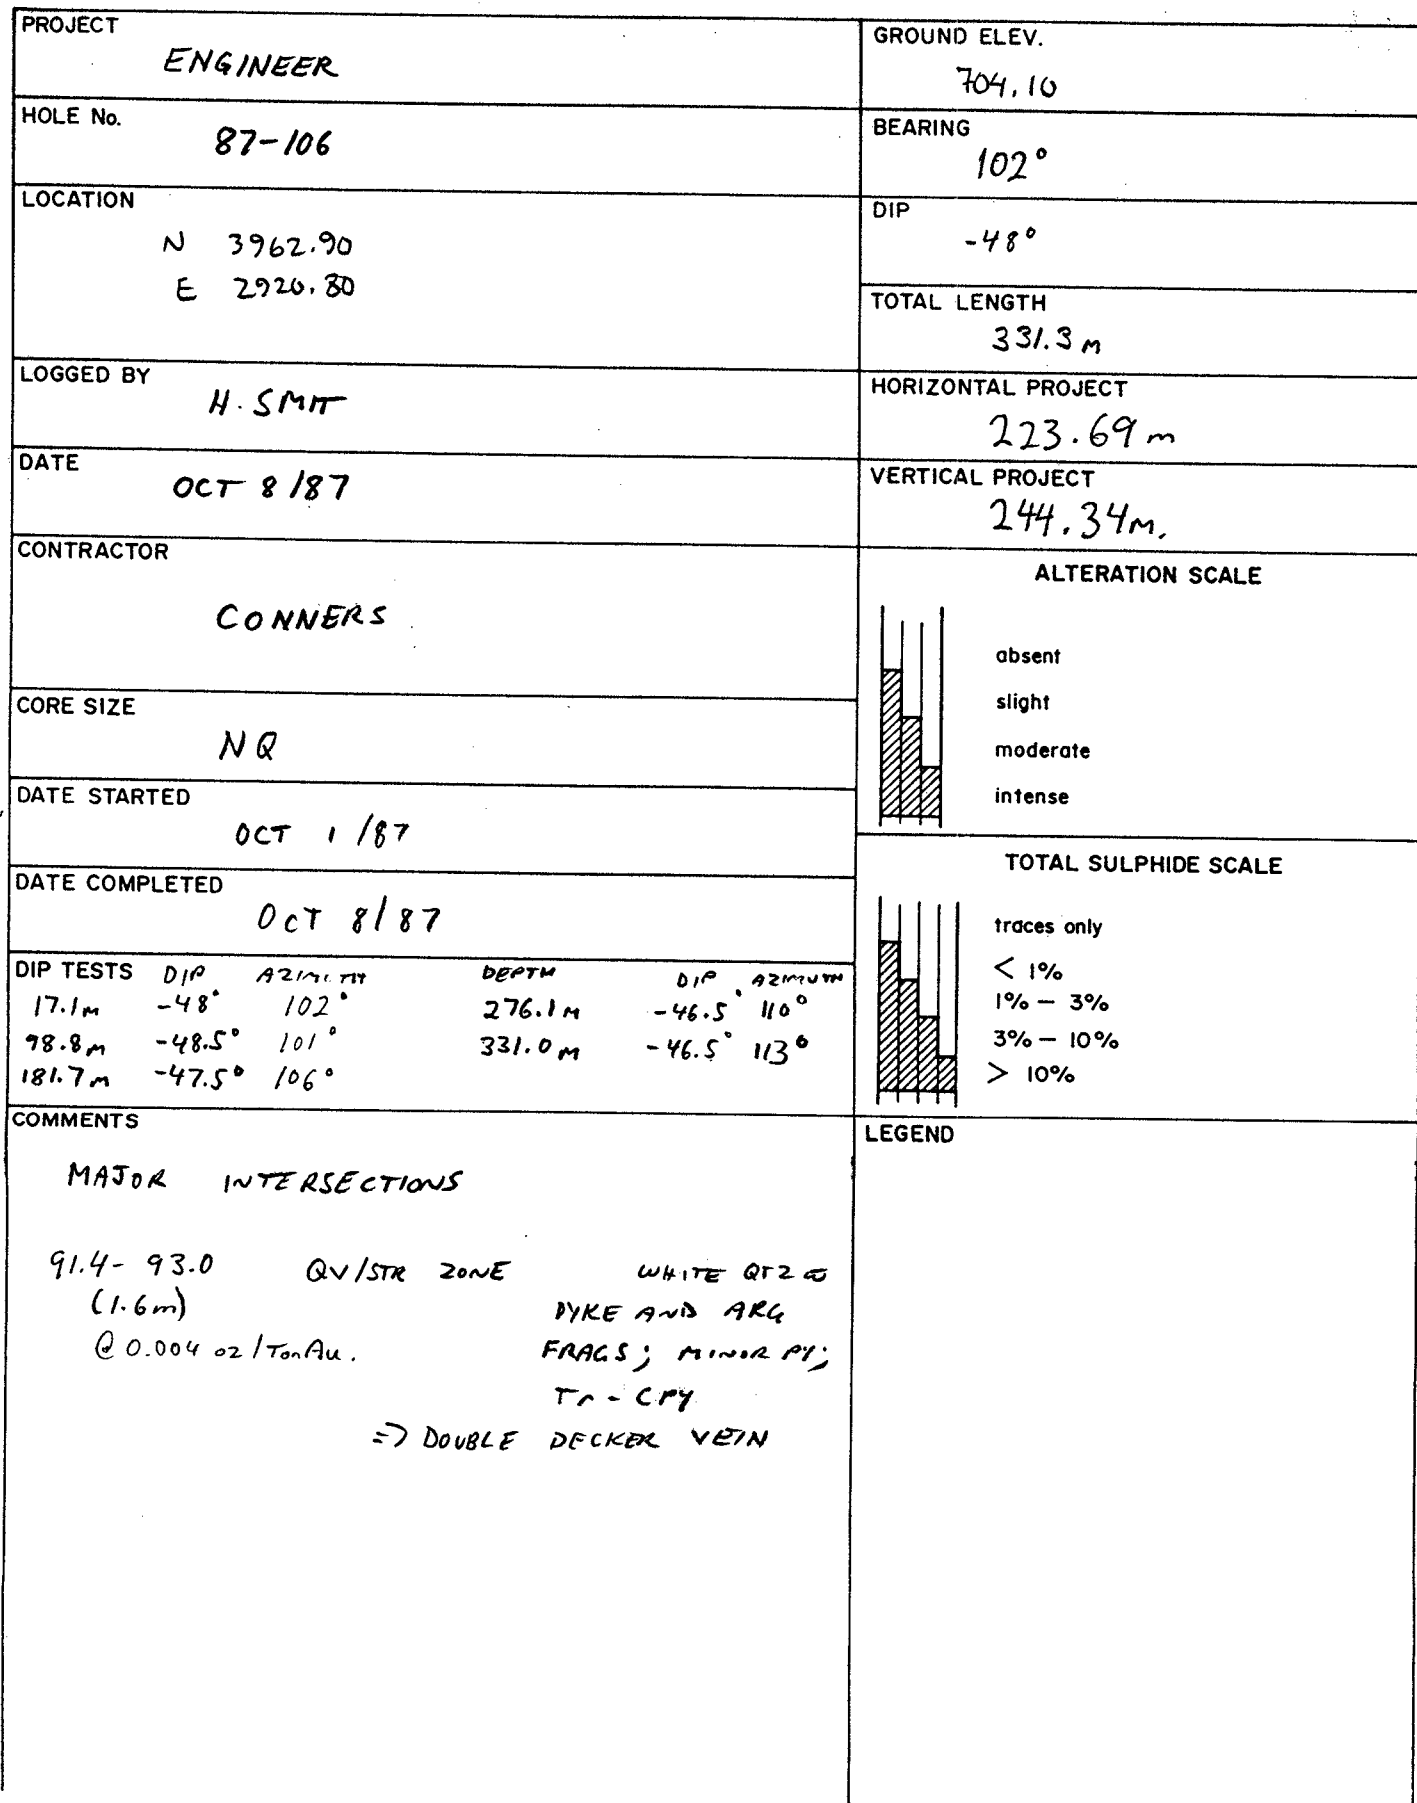 PROJECT
ENGINEER
HOLE No.
87-106
LOCATION
N 3962.90
E 2920.80
LOGGED BY
H. SMIT
DATE
OCT 8/87
CONTRACTOR
CONNERS
CORE SIZE
NQ
DATE STARTED
OCT 1/87
DATE COMPLETED
OCT 8/87
DIP TESTS DIP AZIMUTH DEPTH DIP AZIMUTH
17.1m -48° 102° 276.1m -46.5° 110°
98.8m -48.5° 101° 331.0m -46.5° 113°
181.7m -47.5° 106°
COMMENTS
MAJOR INTERSECTIONS
91.4 - 93.0 QV/STR ZONE WHITE QTZ
(1.6m) DYKE AND ARG
@ 0.004 oz/Ton Au. FRAGS; MINOR PY;
Tr - CPY
=> DOUBLE DECKER VEIN
GROUND ELEV.
704.10
BEARING
102°
DIP
-48°
TOTAL LENGTH
331.3 m
HORIZONTAL PROJECT
223.69 m
VERTICAL PROJECT
244.34m.
ALTERATION SCALE
absent
slight
moderate
intense
TOTAL SULPHIDE SCALE
traces only
< 1%
1% – 3%
3% – 10%
> 10%
LEGEND